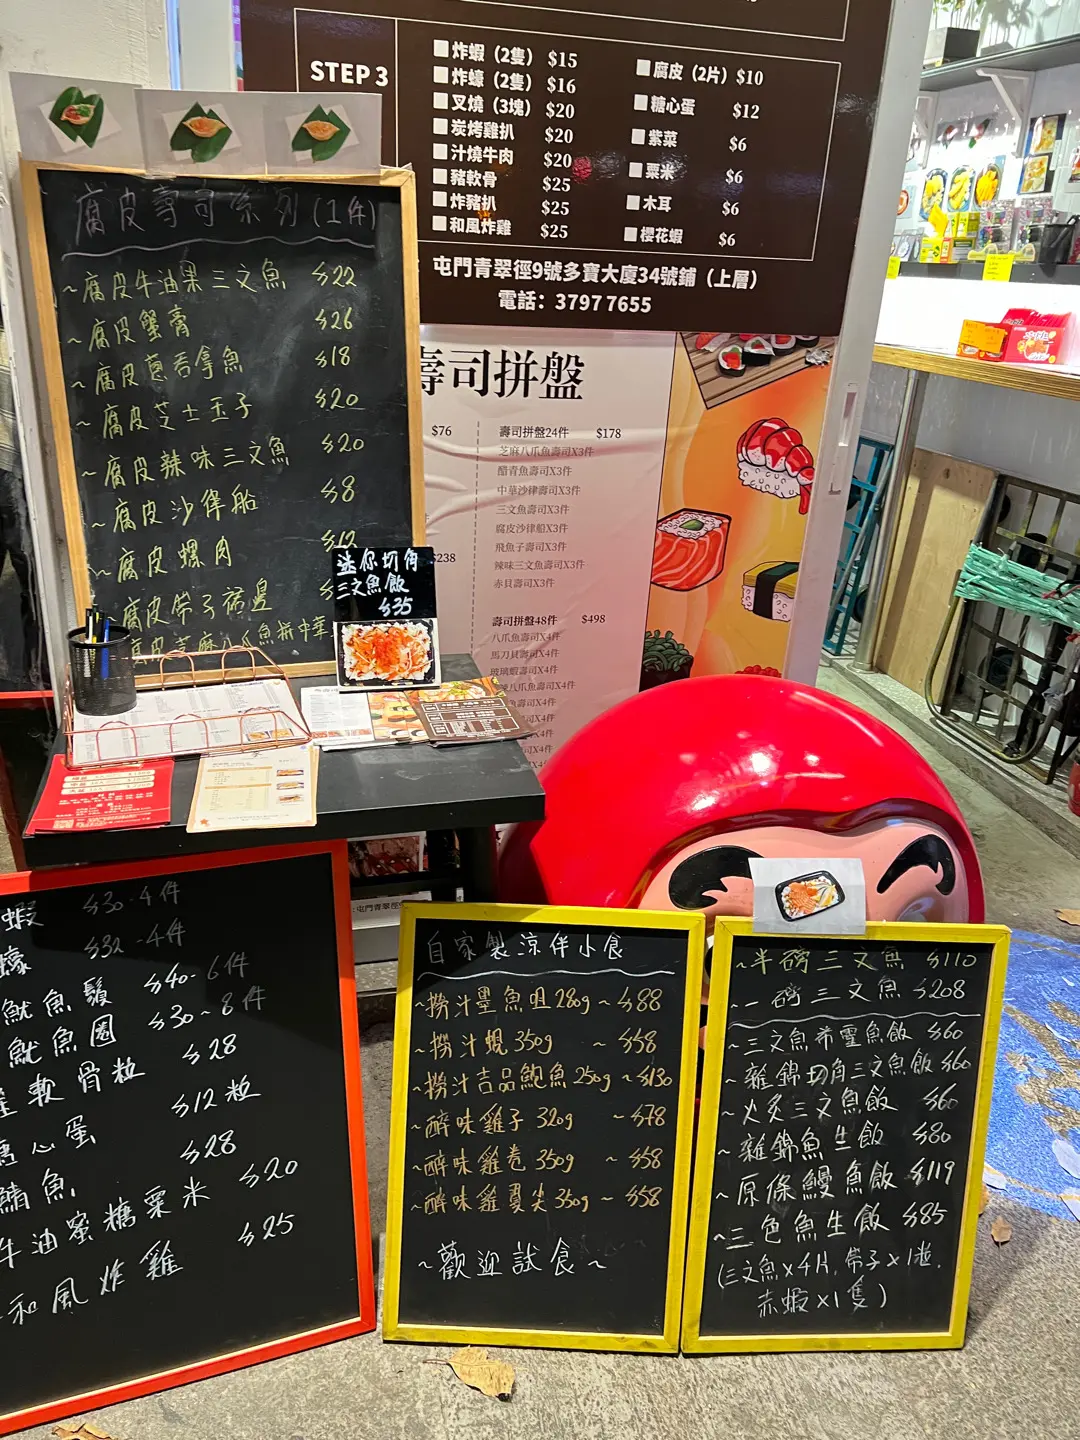 STEP 3
炸蝦（2隻） $15
炸蠔（2隻） $16
叉燒（3塊） $20
炭烤雞扒 $20
汁燒牛肉 $20
豬軟骨 $25
炸豬扒 $25
和風炸雞 $25
腐皮（2片） $10
糖心蛋 $12
紫菜 $6
粟米 $6
木耳 $6
櫻花蝦 $6
屯門青翠徑9號多寶大廈34號鋪（上層）
電話：3797 7655
腐皮壽司系列(1件)
~腐皮牛油果三文魚 $22
~腐皮蟹膏 $26
~腐皮蔥吞拿魚 $18
~腐皮芝士玉子 $20
~腐皮辣味三文魚 $20
~腐皮沙律船 $8
~腐皮螺肉 $12
~腐皮帶子裙邊
迷你切角
三文魚飯
$35
壽司拼盤
$76
$238
壽司拼盤24件 $178
芝麻八爪魚壽司X3件
醋青魚壽司X3件
中華沙律壽司X3件
三文魚壽司X3件
腐皮沙律船X3件
飛魚子壽司X3件
辣味三文魚壽司X3件
赤貝壽司X3件
壽司拼盤48件 $498
八爪魚壽司X4件
馬刀貝壽司X4件
玻璃蝦壽司X4件
八爪魚壽司X4件
壽司X4件
X4件
X4件
X4件
蝦 $30-4件
蠔 $32-4件
魷魚鬚 $40-6件
魷魚圈 $30-8件
軟骨粒 $28
心蛋 $12粒
鯖魚 $28
牛油蜜糖粟米 $20
和風炸雞 $25
自家製涼伴小食
~撈汁墨魚咀280g~$88
~撈汁蜆350g ~$58
~撈汁吉品鮑魚250g~$130
~醉味雞子320g ~$78
~醉味雞卷350g ~$58
~醉味雞翼尖350g~$58
~歡迎試食~
~半磅三文魚 $110
~一磅三文魚 $208
~三文魚希靈魚飯 $60
~雜錦切角三文魚飯 $60
~火炙三文魚飯 $60
~雜錦魚生飯 $80
~原條鰻魚飯 $119
~三色魚生飯 $85
(三文魚×4片,帶子×1粒,
赤蝦×1隻)